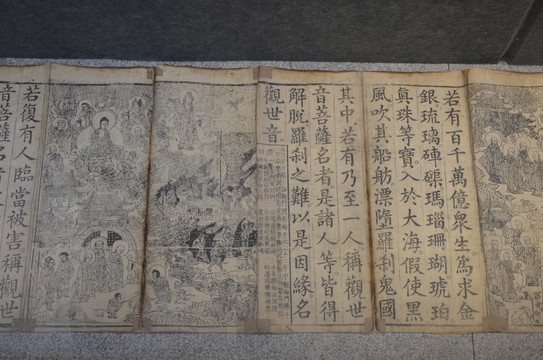 若有百千萬億衆生爲求金
銀琉璃硨磲瑪瑙珊瑚琥珀
真珠等寶入於大海假使黑
風吹其船舫漂墮羅刹鬼國
其中若有乃至一人稱觀世
音菩薩名者是諸人等皆得
解脫羅刹之難以是因緣名
觀世音
若復有人臨當被害稱觀世
音菩薩名者